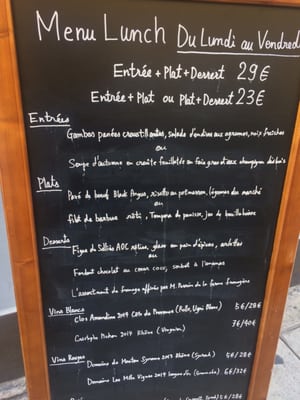 Menu Lunch Du Lundi au Vendredi
Entrée + Plat + Dessert 29€
Entrée + Plat ou Plat + Dessert 23€
Entrées
Gambas panées croustillantes, salade d'endives aux agrumes, noix fraîches
ou
d'automne en croûte feuilletée au foie gras et aux champignons des bois
Plats
Pavé de boeuf Black Angus, risotto au potimarron, légumes du marché
ou
filet de barbue rôti, de panisse, jus de bouillabaisse
Desserts
Figue de Solliès AOC rôties, glace au pain d'épices,
ou
Fondant chocolat au coeur coco, sorbet à l'ananas
L'assortiment de fromage affinés par M. de la ferme
Vins Blancs
Clos 2019 Côte de Provence (Rolle, Ugni Blanc) 5€/28€
2019 Rhône (Viognier) 7€/40€
Vins Rouges
Domaine de 2019 Rhône (Syrah) 5€/28€
Domaine Les Mille Vignes 2019 6€/32€